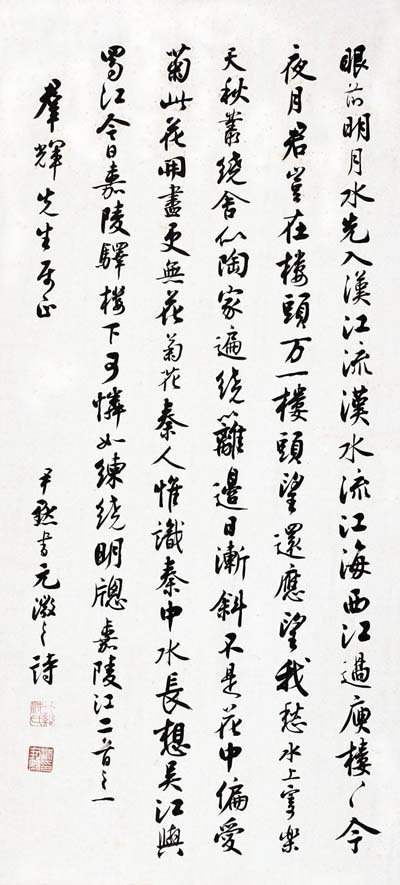 眼前明月水先入漢江流漢水流江海西江過庾樓〻今
夜月君豈在樓頭万一樓頭望還應望我愁水上寄樂
天秋叢繞舍似陶家遍繞籬邊日漸斜不是花中偏愛
菊此花開盡更無花菊花秦人惟識秦中水長想吳江與
蜀江今日嘉陵驛樓下可憐如練繞明牕嘉陵江二首之一
羣輝先生属正
尹默書元微之詩